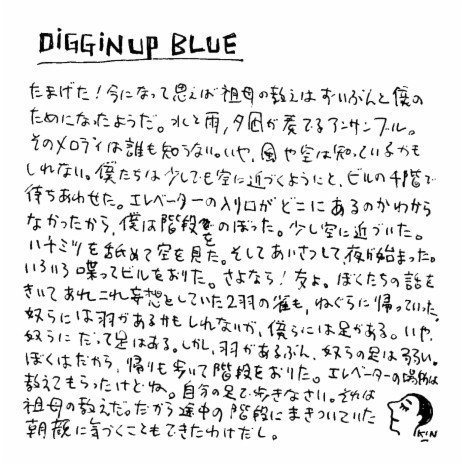 DiGGiNUP BLUE
たまげた!今になって思えば祖母の教えはずいぶんと僕の
ためになったようだ。水と雨,夕凪が奏でるアンサンブル。
そのメロディは誰も知らない。いや、風や空は知っているかも
しれない。僕たちは少しでも空に近づくようにと、ビルの4階で
待ちあわせた。エレベーターの入り口がどこにあるのかわから
なかったから、僕は階段をのぼった。少し空に近づいた。
ハチミツを舐めて空を見た。そしてあいさつして夜が始まった。
いろいろ喋ってビルをおりた。さよなら!友よ。ぼくたちの話を
きいてあれこれ妄想していた2羽の雀も、ねぐらに帰っていった。
奴らには羽があるかもしれないが、僕らには足がある。いや、
奴らにだって足はある。しかし、羽があるぶん、奴らの足は弱い。
ぼくはだから、帰りも歩いて階段をおりた。エレベーターの場所は
教えてもらったけどね。自分の足で歩きなさい。それは
祖母の教えだ。だから途中の階段にまきついていた
朝顔に気づくこともできたわけだし。
KiN